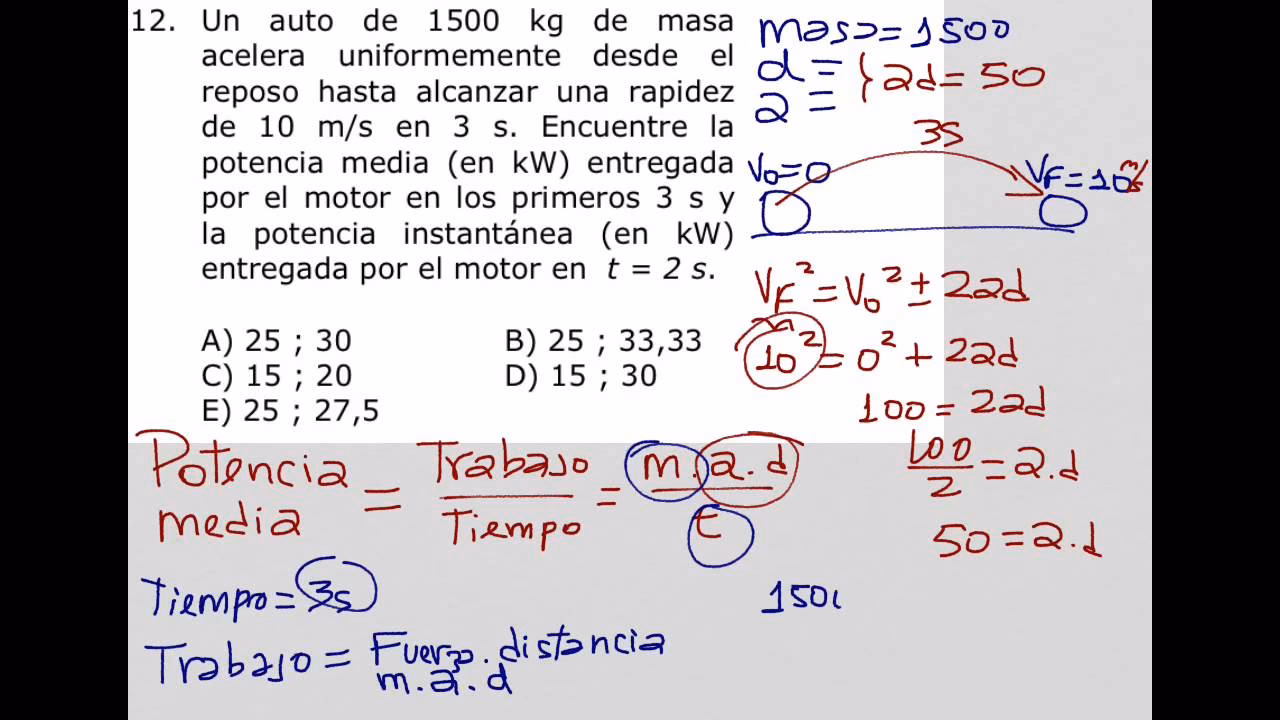 12. Un auto de 1500 kg de masa
acelera uniformemente desde el
reposo hasta alcanzar una rapidez
de 10 m/s en 3 s. Encuentre la
potencia media (en kW) entregada
por el motor en los primeros 3 s y
la potencia instantánea (en kW)
entregada por el motor en t = 2 s.
A) 25 ; 30 B) 25 ; 33,33
C) 15 ; 20 D) 15 ; 30
E) 25 ; 27,5
masa = 1500
d =
a = } ad = 50
3s
V₀=0
VF=10 m/s
VF² = V₀² ± 2ad
10² = 0² + 2ad
100 = 2ad
100/2 = a.d
50 = a.d
Potencia media = Trabajo/Tiempo = m.a.d/t
Tiempo = 3s
Trabajo = Fuerza.distancia
m.a.d
150